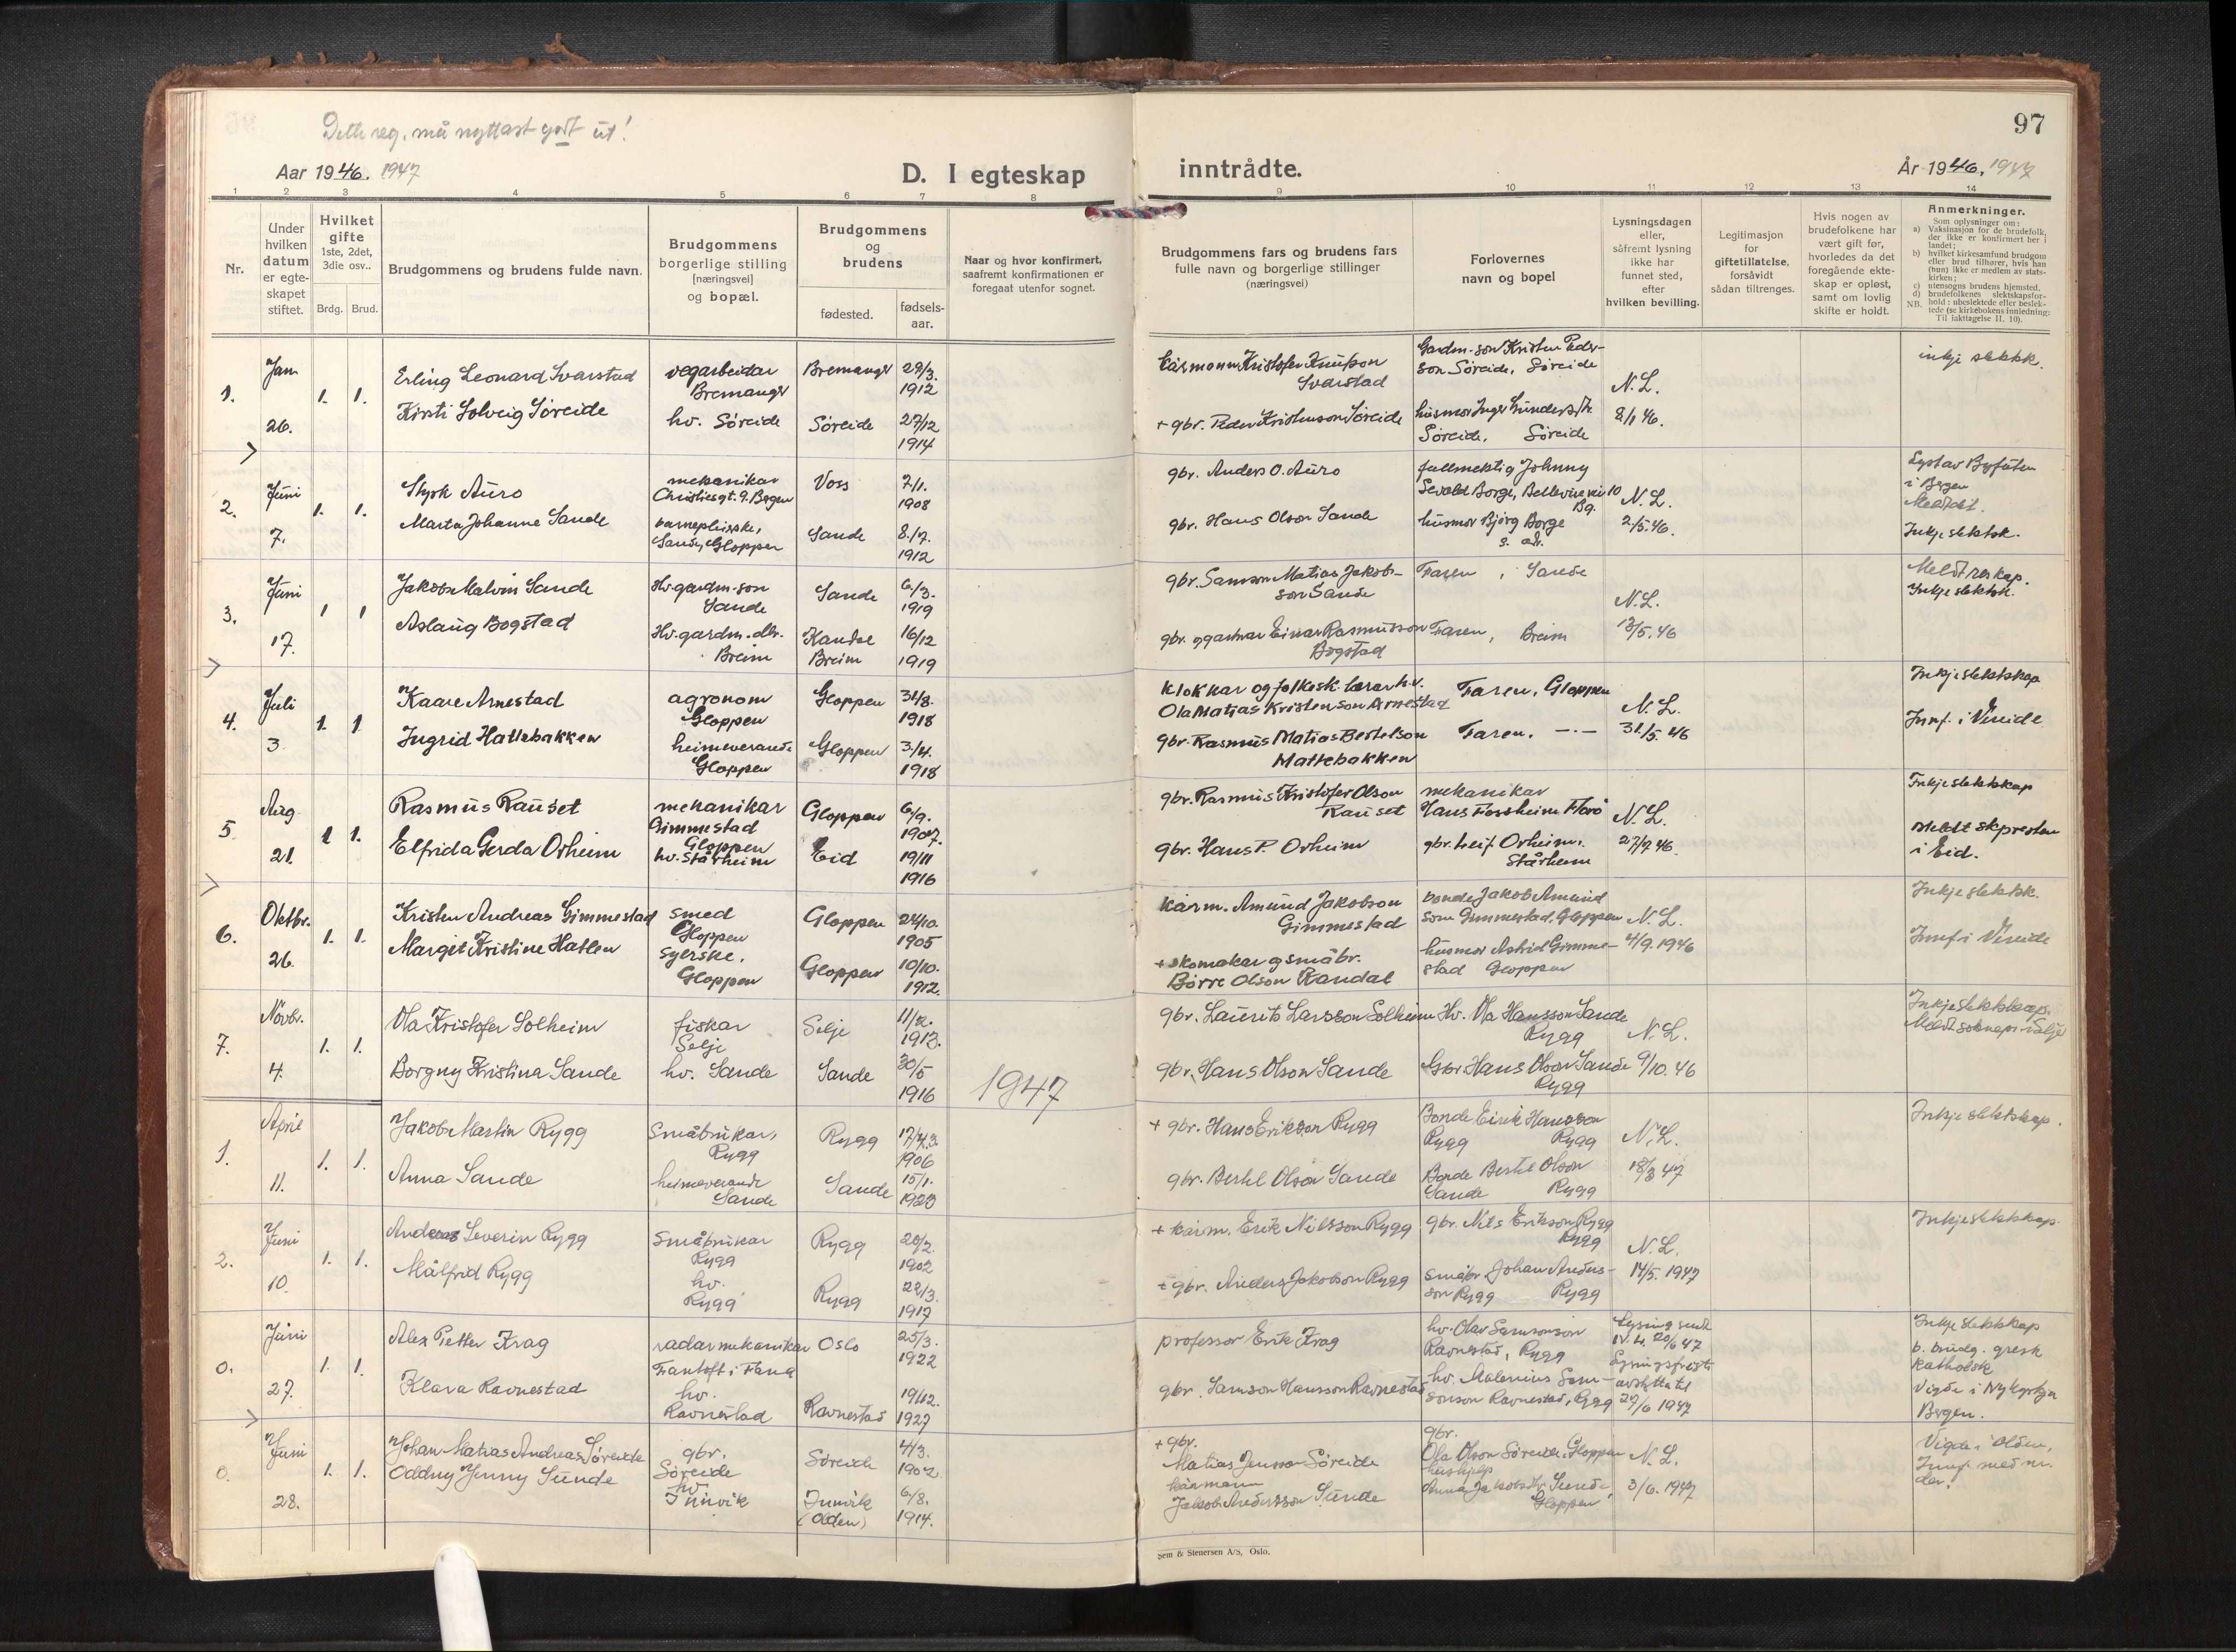 Dette reg. må nyttast godt ut!
97
Aar 1946. 1947
D. I egteskap
inntrådte.
År 1946. 1947
1 2 3 4 5 6 7 8 9 10 11 12 13 14
Nr.
Under hvilken datum er egte-skapet stiftet.
Hvilket gifte 1ste, 2det, 3die osv..
Brdg. Brud.
Brudgommens og brudens fulde navn.
Brudgommens borgerlige stilling [næringsvei] og bopæl.
Brudgommens og brudens
fødested.
fødsels-aar.
Naar og hvor konfirmert, saafremt konfirmationen er foregaat utenfor sognet.
Brudgommens fars og brudens fars fulle navn og borgerlige stillinger (næringsvei)
Forlovernes navn og bopel
Lysningsdagen eller, såfremt lysning ikke har funnet sted, efter hvilken bevilling.
Legitimasjon for giftetillatelse, forsåvidt sådan tiltrenges.
Hvis nogen av brudefolkene har vært gift før, hvorledes da det foregående ekte-skap er opløst, samt om lovlig skifte er holdt.
Anmerkninger.
Som oplysninger om:
a) Vaksinasjon for de brudefolk, der ikke er konfirmert her i landet;
b) hvilket kirkesamfund brudgom eller brud tilhører, hvis han (hun) ikke er medlem av stats-kirken;
c) utensogns brudens hjemsted.
d) brudefolkenes slektskapsfor-
NB. hold: ubeslektede eller beslek-tede (se kirkebokens innledning: Til iakttagelse II. 10).
1. Jan 26. 1. 1.
Erling Leonard Svarstad
vegarbeidar Bremanger
Bremanger 29/3. 1912
kårmann Kristofer Knutson Svarstad
Gardm.son Kristen Peder-son Søreide, Søreide
N.L. 8/1 46.
inkje slektsk.
Kirsti Solveig Søreide
hv. Søreide
Søreide 27/12 1914
+ gbr. Peder Kristenson Søreide
husmor Inger Gundersdtr. Søreide, Søreide
2. Juni 7. 1. 1.
Styrk Auro
mekanikar Christiesgt. 9. Bergen
Voss 7/1. 1908
gbr. Anders O. Auro
fullmektig Johnny Sevald Borge, Bellevuevei 10 Bg.
N.L. 2/5.46.
i Bergen
Inkje slektsk.
Marta Johanne Sande
barnepleierske, Sande, Gloppen
Sande 8./7. 1912
gbr. Hans Olson Sande
husmor Bjørg Borge s. adr.
3. Juni 17. 1 1
Jakob Malvin Sande
Hv. gardm.son Sande
Sande 6/3. 1919
gbr. Samson Matias Jakob-son Sande
Faren, Sande
N.L. 13/5. 46
Inkje slektsk.
Aslaug Bogstad
Hv. gardm.dtr. Breim
Kandal Breim 16/12 1919
gbr. og gartnar Einar Rasmusson Bogstad
Faren, Breim
4. Juli 3. 1. 1
Kaare Arnestad
agronom Gloppen
Gloppen 31/8. 1918
klokkar og folkesk. lærar h.v. Ola Matias Kristenson Arnestad
Faren, Gloppen
N.L. 31/5. 46
Inkje slektskap
Innf. i Vereide
Ingrid Hattebakken
heimeverande Gloppen
Gloppen 3./4. 1918
gbr. Rasmus Matias Bertelson Mattebakken
Faren. —·—
5. Aug 21. 1 1.
Rasmus Rauset
mekanikar Gimmestad Gloppen
Gloppen 6/9. 1907.
gbr. Rasmus Kristofer Olson Rauset
mekanikar Hans Forsheim Florø
N.L. 27/7 46.
Inkje slektskap
Meldt skpresten i Eid.
Elfrida Gerda Orheim
hv. Stårheim
Eid 19/11 1916
gbr. Hans P. Orheim
gbr. Leif Orheim. Stårheim
6. Oktbr. 26. 1. 1.
Kristen Andreas Gimmestad
smed Gloppen
Gloppen 24/10. 1905
kårm. Amund Jakobson Gimmestad
bonde Jakob Amund son Gimmestad, Gloppen
N.L. 4/9. 1946
Inkje slektsk.
Innf. i Vereide
Margit Kristine Hatlen
syerske, Gloppen
Gloppen 10/10. 1912.
+ skomakar og småbr. Børre Olson Randal
husmor Astrid Gimme-stad Gloppen
7. Novbr. 4. 1. 1.
Ola Kristofer Solheim
fiskar Selje
Selje 11/2. 1913.
gbr. Laurits Larsson Solheim
Hv. Ola Hansson Sande Rygg
N.L. 9/10. 46
Inkje slektskap.
Meldt soknepr. i Selje
Borgny Kristina Sande
hv. Sande
Sande 30/5 1916
gbr. Hans Olson Sande
Gbr. Hans Olson Sande Rygg
1947
1. April 11. 1. 1.
Jakob Martin Rygg
Småbrukar, Rygg
Rygg 1906
+ gbr. Hans Erikson Rygg
Bonde Eirik Hansson Rygg Rygg
N.L. 18/3 47
Inkje slektskap.
Anna Sande
heimeverande Sande
Sande 15/1. 1920
gbr. Bertel Olson Sande
Bonde Bertel Olson Sande Rygg
2. Juni 10. 1. 1.
Andreas Severin Rygg
Småbrukar Rygg
Rygg 20/2. 1902
+ kårm. Erik Nilsson Rygg
gbr. Nils Erikson Rygg Rygg
N.L. 14/5. 1947
Inkje slektskap.
Målfrid Rygg
hv. Rygg
Rygg 22/3. 1917
+ gbr. Anders Jakobson Rygg
småbr. Johan Anders-son Rygg Rygg
0. Juni 27. 1. 1.
Alex Petter Krag
radarmekanikar Fantoft i Fana
Oslo 25/3. 1922
professor Erik Krag
hv. Olav Samsonson Ravnestad, Rygg
Lysing sendt N.L. 20/6 47
Lysingsfrist avstytta til 27/6 1947
Inkje slektskap
b. brudg. gresk katholsk
Vigde i Nykyrkja Bergen.
Klara Ravnestad
hv. Ravnestad
Ravnestad 19/12. 1927
gbr. Samson Hansson Ravnestad
hv. Malenius Sam-sonson Ravnestad, Rygg
0. Juni 28. 1. 1.
Johan Matias Andreas Søreide
gbr. Søreide
Søreide 4/3. 1902
+ gbr. Matias Jensson Søreide
gbr. Ola Olson Søreide, Gloppen
N.L. 3/6. 1947
Vigde i Olden,
Innf. med nr. der.
Oddny Jenny Sunde
hv. Innvik
Innvik (Olden) 6/8. 1914.
kårmann Jakob Andersson Sunde
hushjelp Anna Jakobsdtr. Sunde, Gloppen
Sem & Stenersen A/S, Oslo.